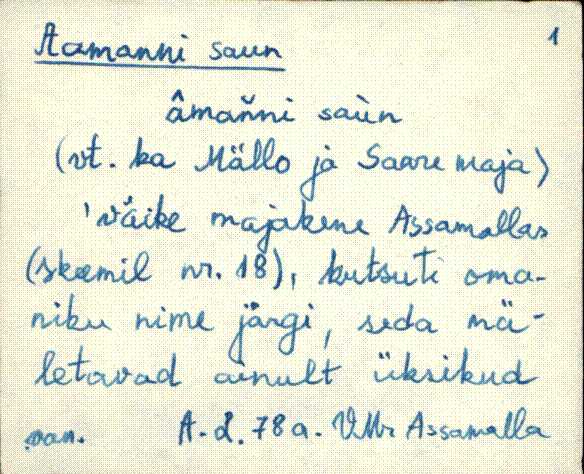 Aamanni saun
1
âmaňni saùn
(vt. ka Mällo ja Saare maja)
'väike majakene Assamallas
(skeemil nr. 18), kutsuti oma-
niku nime järgi, seda mä-
letavad ainult üksikud
van. A. L. 78 a. VMr Assamalla